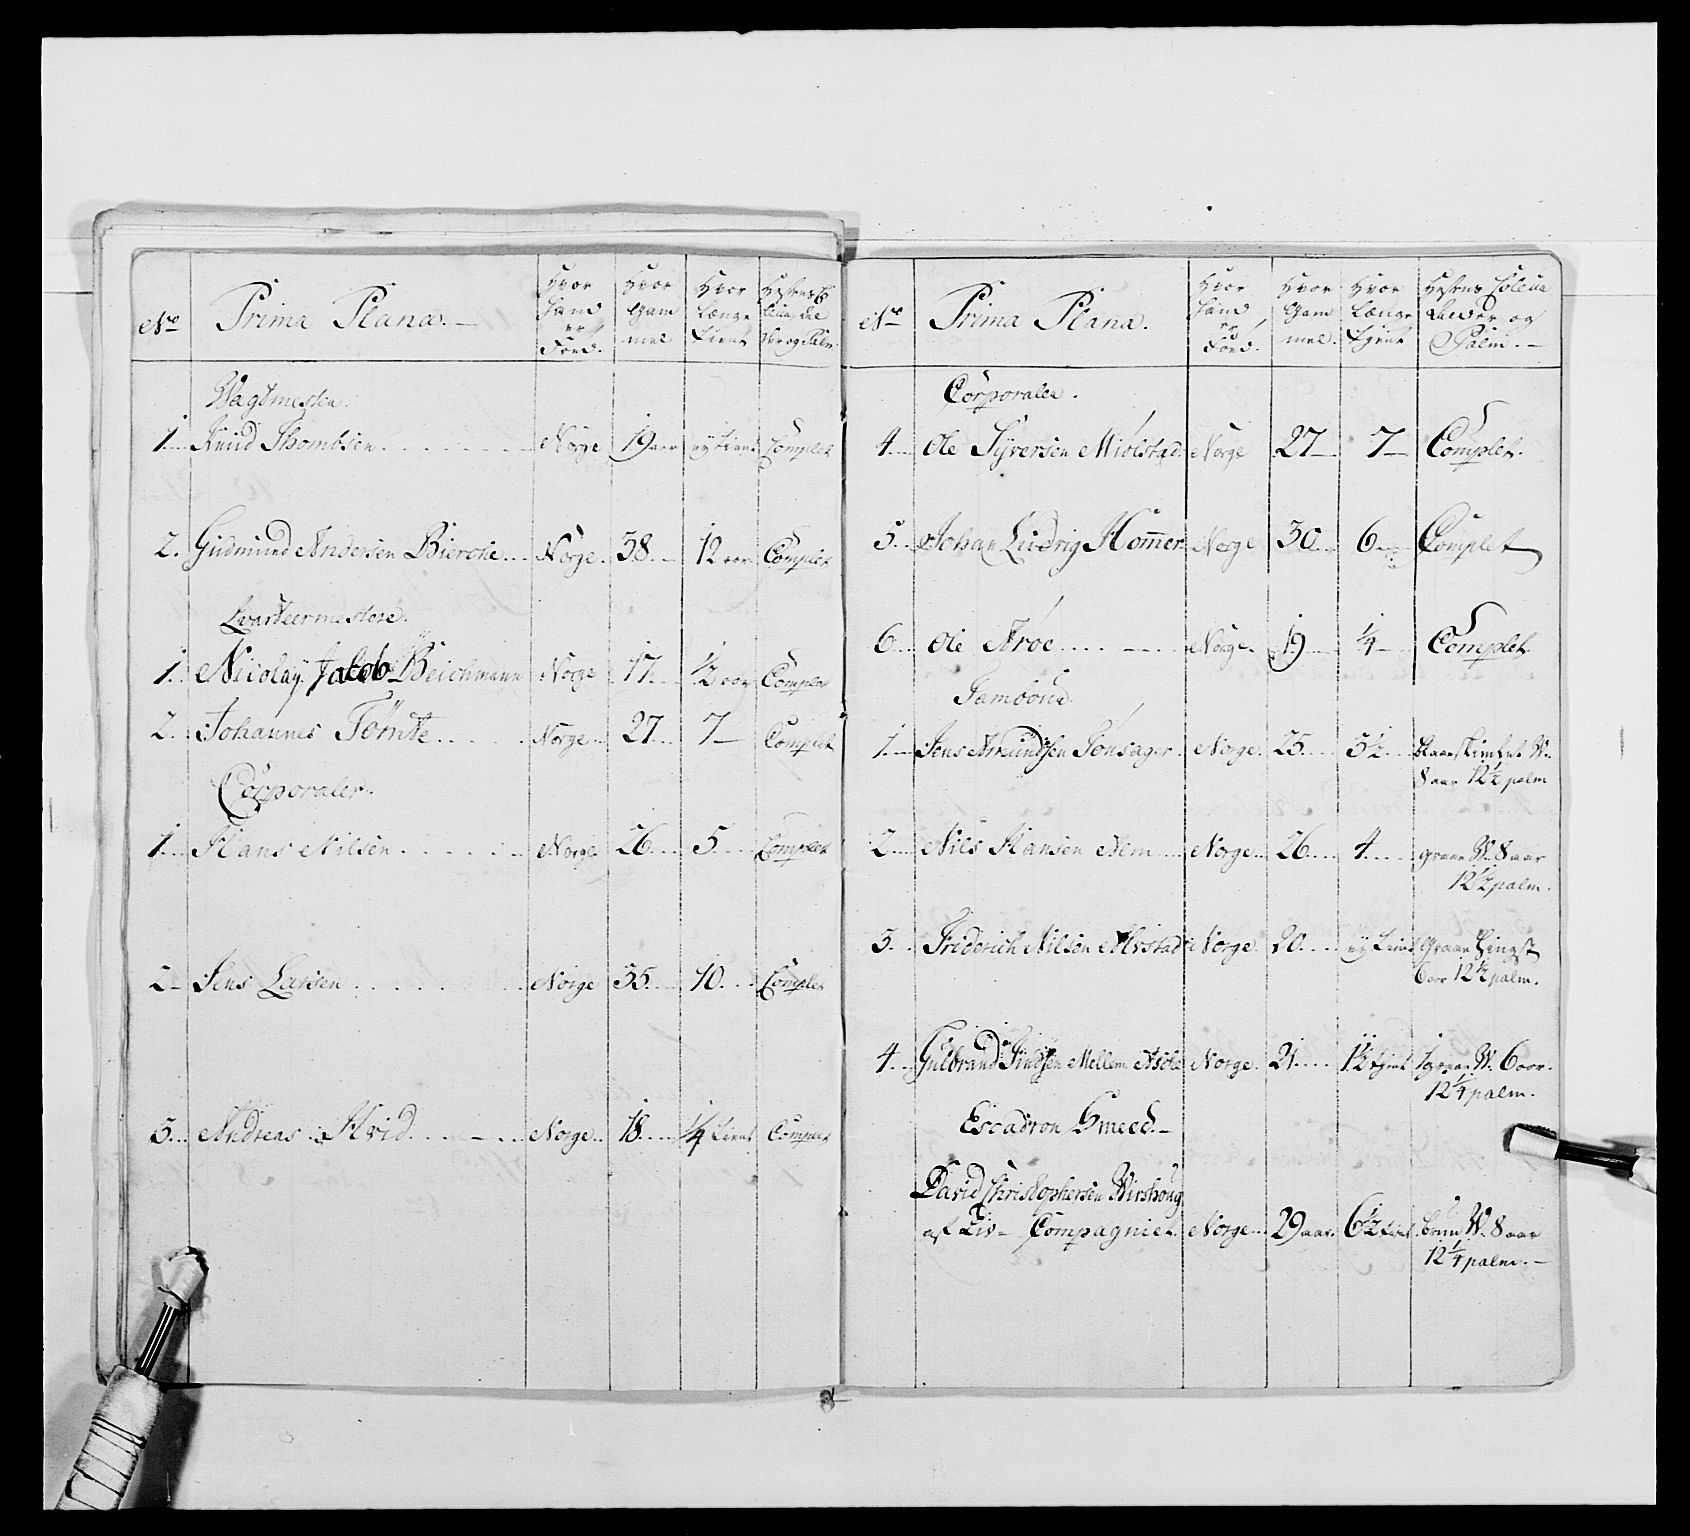 No Prima Plana. Hvor Hvor Hvor Hestens
Land Gam Længe
er mel Tient
Föed. Ver og Palm.
Wagtmester.
1. Knud Thombsen Norge 19 aar ny tient Complet
2. Gudmund Andersen Bierche Norge. 38 12 aar Complet
Qvarteermestere.
1. Nicolay Jacob Beichmann Norge 17 1/2 aar Complet
2. Johannes Tömte Norge 27 7 Complet
Corporaler.
1. Hans Nilsen Norge 26 5 Complet
2 Jens Larsen Norge 35 10 Complet
3. Andreas Hvid Norge 18 1/4 tient Complet
No Prima Plana. Hvor Hvor Hvor Hestens Coleur
Land Gam Længe Alder og
er mel. Tient Palm.
Föed.
Corporaler.
4. Ole Syversen Miölstad Norge 27 7 Complet.
5. Johan Ludvig Hommer Norge 30 6 Complet
6. Ole Aröe Norge 19 1/4 Complet
Tambour
1. Jens Amundsen Tonsager Norge 25 5 1/2 W.
8 aar 12 1/2 palm
2. Nils Hansen Alm Norge 26 4 graae W. 8 aar
12 1/2 palm.
3. Friderich Nilsen Alvstad Norge 20 ny tient Graae Hingst
6 aar 12 1/2 palm.
4. Gulbrand Mellem Norge 21 1 1/2 tient graae W. 6 aar
12 1/4 palm.
Escadron Smeed.
David Christophersen
af Liv-Compagniet. Norge 29 aar 6 1/2 tient bruun W. 8 aar
12 1/4 palm.